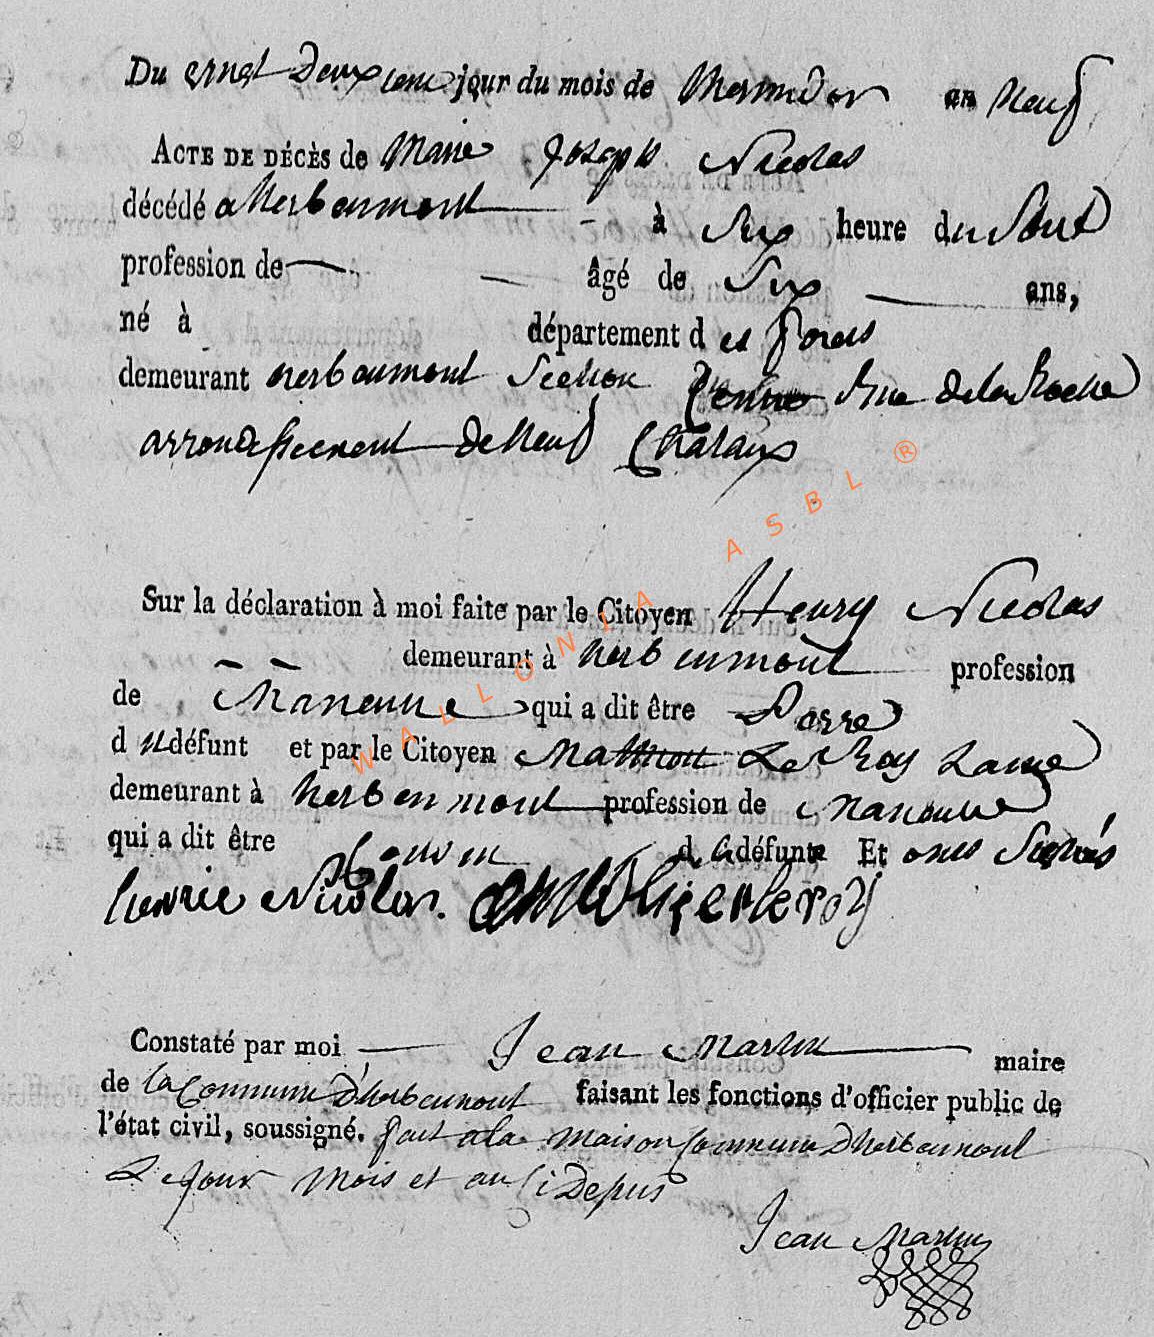 Du vingt Deuxieme jour du mois de thermidor an neuf
ACTE DE DÉCÈS de Marie Joseph Nicolas
décédé a herbeumont à Six heure du Soir
profession de âgé de Six ans,
né à département d es forets
demeurant herbeumont Section rue de la Roche
arrondissement de Neuf Chataux
Sur la déclaration à moi faite par le Citoyen Henry Nicolas
demeurant à herbeumont profession
de Maneuvre qui a dit être Parre
d u défunt et par le Citoyen Le Roy
demeurant à herbeumont profession de Manouvre
qui a dit être d la défunte Et ons Signés
henrie Nicolas. leroy
Constaté par moi Jean Martin maire
de la Commune D'herbeumont faisant les fonctions d'officier public de
l'état civil, soussigné. fait a la maison Commune D'herbeumont
Le jour mois et an
Jean Martin
WALLONIA ASBL ®